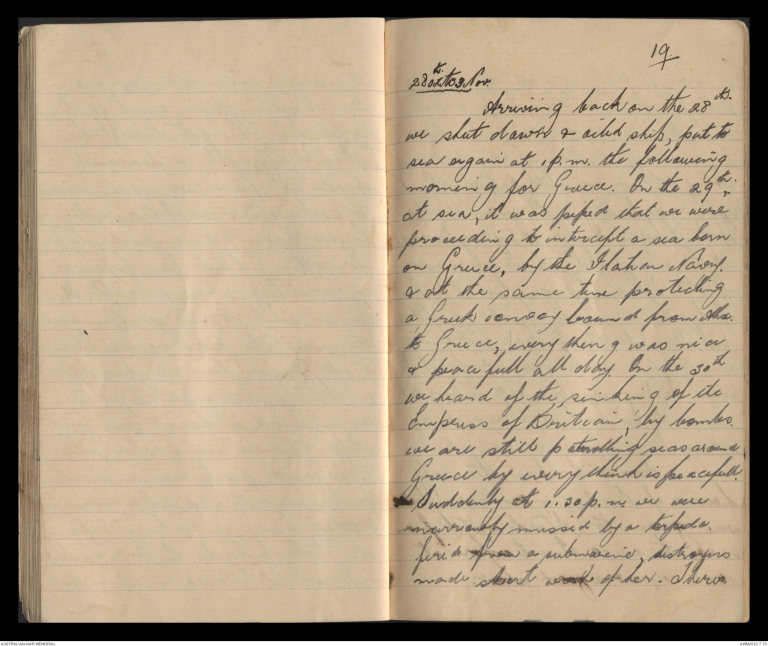 19
28th Oct to 3 Nov.
Arriving back on the 28th.
we shut down & oiled ship, put to
sea again at 1 p.m. the following
morning for Greece. On the 29th.
at sea, it was piped that we were
proceeding to intercept a sea born
on Greece, by the Itatian Navy.
& at the same time protecting
a Greek convoy bound from Alex.
to Greece, every thing was nice
& peacefull all day. On the 30th
we heard of the sinking of the
Empress of Britain, by bombs.
we are still patrolling seas around
Greece by every think is peacefull.
Suddenly at 1.30 p.m. we were
narrowly missed by a torpedo.
fired from a submarine, destroyers
made short work of her. There
AUSTRALIAN WAR MEMORIAL